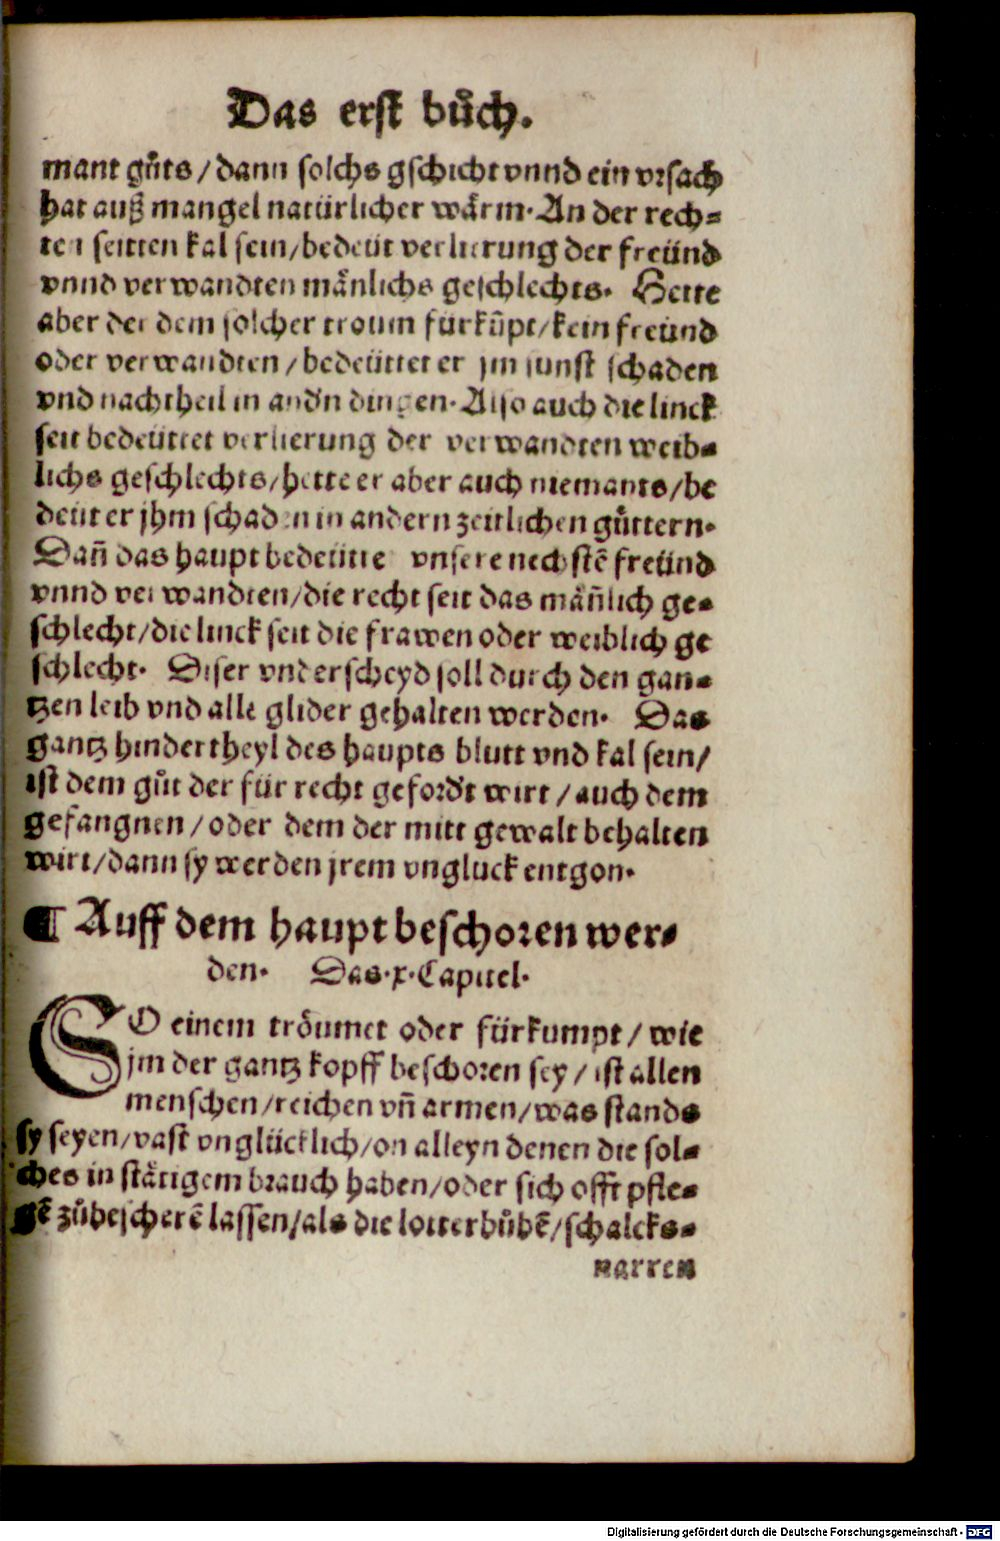 Das erst bůch.
mant gůts / dann solchs gschicht vnnd ein vrsach
hat auß mangel natürlicher wärm. An der rech⸗
ten seitten kal sein / bedeüt verlierung der freünd
vnnd verwandten mänlichs geschlechts. Hette
aber der dem solcher troum fürkũpt / kein freünd
oder verwandten / bedeüttet er jm sunst schaden
vnd nachtheil in andn dingen. Also auch die linck
seit bedeüttet verlierung der verwandten weib⸗
lichs geschlechts / hette er aber auch niemants / be
deüt er jhm schaden in andern zeitlichen gůttern.
Dañ das haupt bedeütte vnsere nechstẽ freünd
vnnd verwandten / die recht seit das mäñlich ge⸗
schlecht / die linck seit die frawen oder weiblich ge
schlecht. Diser vnderscheyd soll durch den gan⸗
tzen leib vnd alle glider gehalten werden. Das
gantz hindertheyl des haupts blutt vnd kal sein /
ist dem gůt der für recht gefordt wirt / auch dem
gefangnen / oder dem der mitt gewalt behalten
wirt / dann sy werden jrem vngluck entgon.
¶ Auff dem haupt beschoren wer⸗
den. Das .x. Capitel.
SO einem tröumet oder fürkumpt / wie
jm der gantz kopff beschoren sey / ist allen
menschen / reichen vñ armen / was stands
sy seyen / vast vnglücklich / on alleyn denen die sol⸗
ches in stätigem brauch haben / oder sich offt pfle⸗
gẽ zůbescherẽ lassen / als die lotterbůbẽ / schalcks⸗
narren
Digitalisierung gefördert durch die Deutsche Forschungsgemeinschaft - DFG